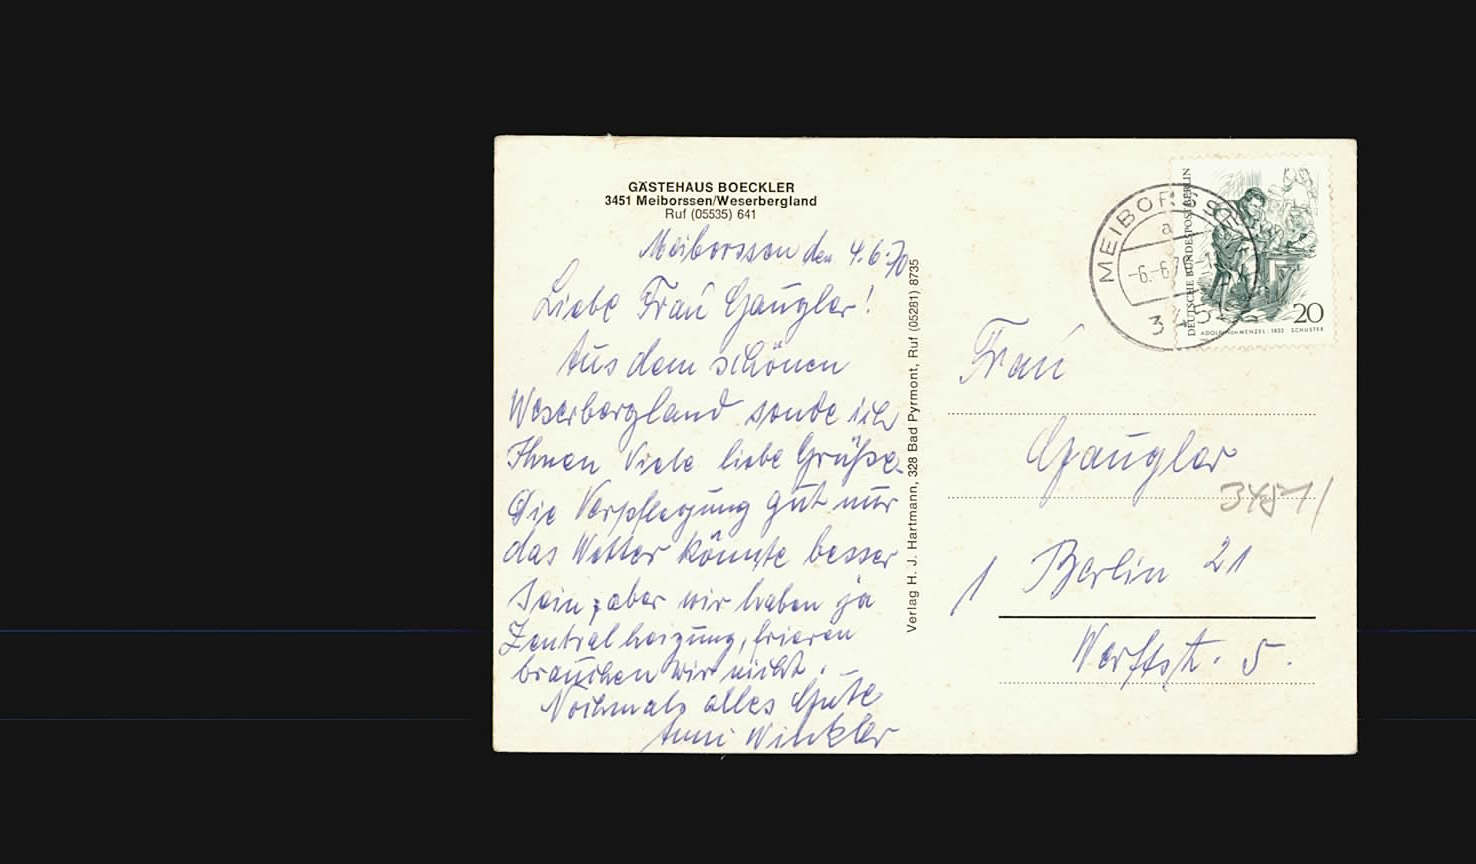 GÄSTEHAUS BOECKLER
3451 Meiborssen/Weserbergland
Ruf (05535) 641
Meiborssen den 4.6.70
Liebe Frau Gaugler!
Aus dem schönen
Weserbergland sende ich
Ihnen Viele liebe Grüße.
Die Verpflegung gut nur
das Wetter könnte besser
sein, aber wir haben ja
Zentralheizung, frieren
brauchen wir nicht.
Nochmals alles Gute
Anni Winkler
Verlag H. J. Hartmann, 328 Bad Pyrmont, Ruf (05281) 8735
MEIBORSSEN
a
-6.-6.7
DEUTSCHE BUNDESPOST BERLIN
20
ADOLPH von MENZEL · 1832 SCHUSTER
Frau
Gaugler
3451/
1 Berlin 21
Werftst. 5.